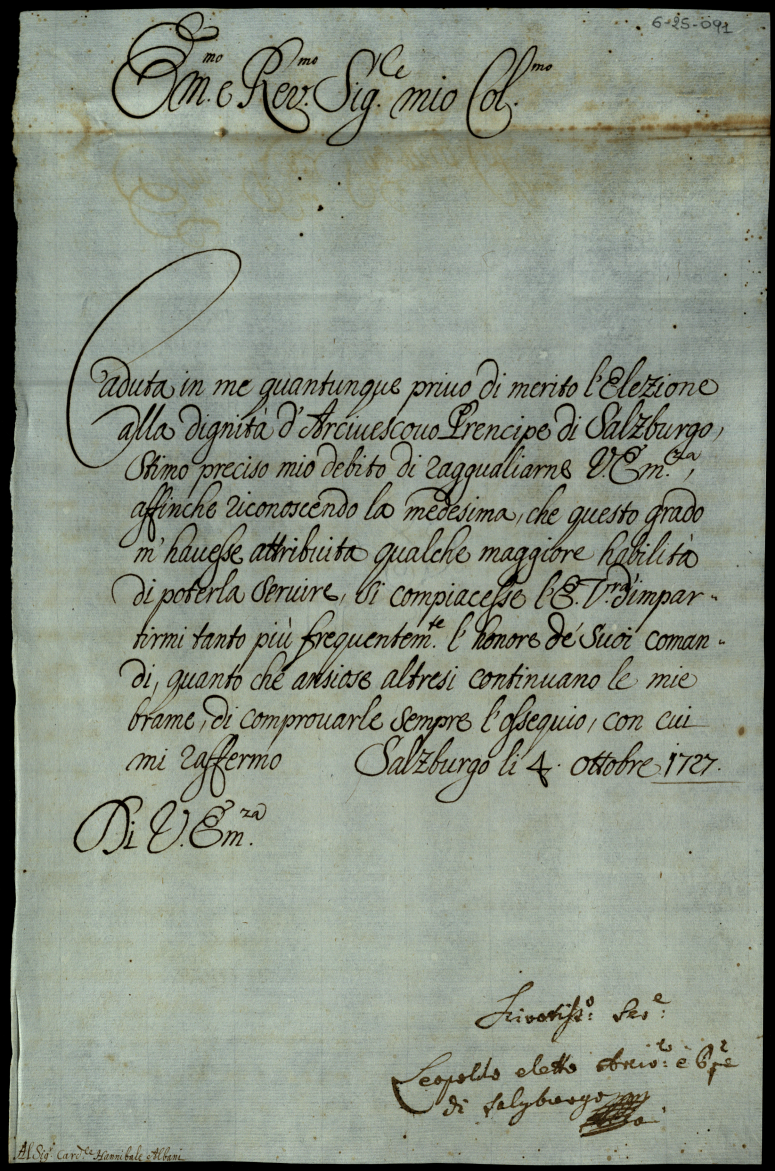 6-25-091
Em.mo e Rev.mo Sig.r mio Col.mo
Caduta in me quantunque priuo di merito l'Elezione
alla dignità d'Arciuescouo Prencipe di Salzburgo,
stimo preciso mio debito di raggualiarne V. Em.za,
affinche riconoscendo la medesima, che questo grado
m'hauesse attribuita qualche maggiore habilità
di poterla seruire, si compiacesse l'E. V.ra d'impar-
tirmi tanto più frequentem.te l'honore de' suoi coman-
di, quanto che ansiose altresi continuano le mie
brame, di comprouarle sempre l'ossequio, con cui
mi raffermo Salzburgo li 4. ottobre 1727.
Di V. Em.za
Ser.e
Leopoldo eletto Arciv.o e P.pe
di Salzburgo
Al Sig.r Card.le Hannibale Albani